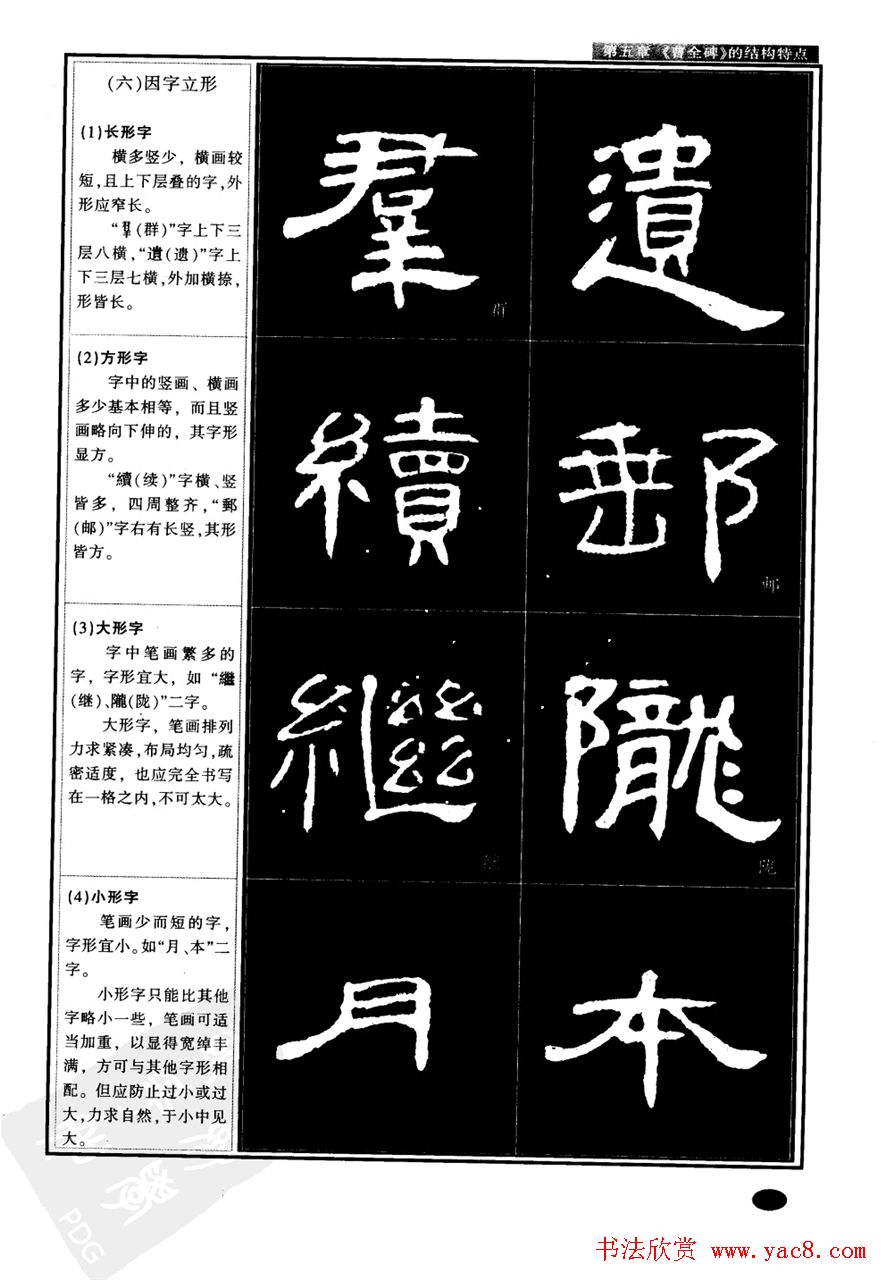 第五章 《曹全碑》的结构特点
(六)因字立形
(1)长形字
横多竖少，横画较
短,且上下层叠的字,外
形应窄长。
“羣(群)”字上下三
层八横,“遺(遗)”字上
下三层七横,外加横捺,
形皆长。
羣
遺
群
(2)方形字
字中的竖画、横画
多少基本相等，而且竖
画略向下伸的，其字形
显方。
“續(续)”字横、竖
皆多，四周整齐,“郵
(邮)”字右有长竖,其形
皆方。
續
郵
邮
(3)大形字
字中笔画繁多的
字，字形宜大，如“繼
(继)、隴(陇)”二字。
大形字，笔画排列
力求紧凑,布局均匀,疏
密适度，也应完全书写
在一格之内,不可太大。
繼
隴
继
陇
(4)小形字
笔画少而短的字，
字形宜小。如“月、本”二
字。
小形字只能比其他
字略小一些，笔画可适
当加重，以显得宽绰丰
满，方可与其他字形相
配。但应防止过小或过
大,力求自然,于小中见
大。
月
本
PDG
书法欣赏 www.yac8.com